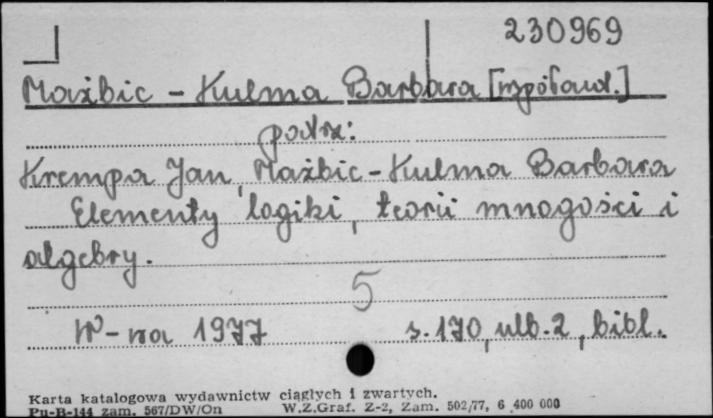 230969
Mażbic-Kulma Barbara [współaut.]
patrz:
Krempa Jan, Mażbic-Kulma Barbara
Elementy logiki, teorii mnogości i
algebry.
5
W-wa 1977 s. 170, nlb. 2, bibl.
Karta katalogowa wydawnictw ciągłych i zwartych.
Pu-B-144 zam. 567/DW/On W.Z.Graf. Z-2, Zam. 502/77, 6 400 000